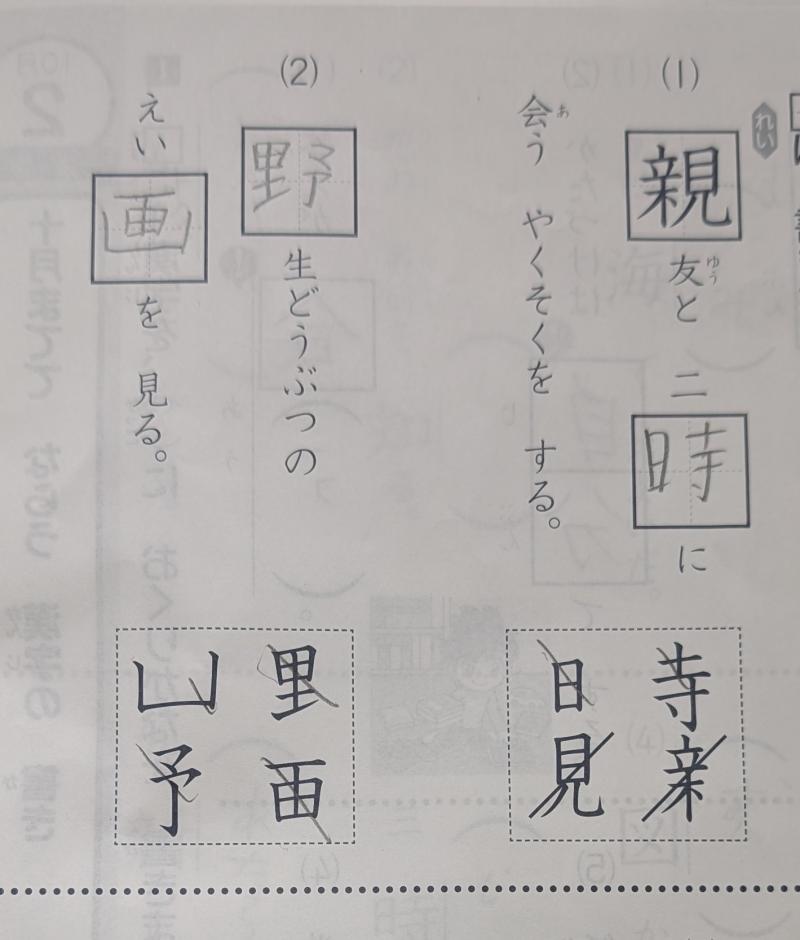 れい
(1)
親友と 二時に
ゆう
会う やくそくを する。
あ
寺 亲
日 見
(2)
野生どうぶつの
えい画を 見る。
里 画
凵 予